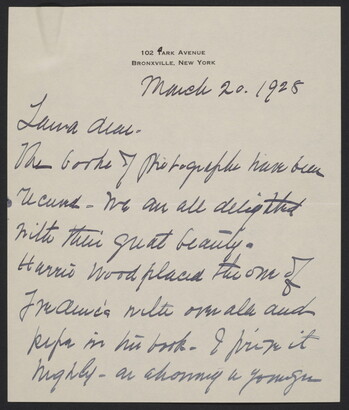 102 Park Avenue
Bronxville, New York
March 20. 1928
Laura dear.
The books of photographs have been
received - We are all delighted
with their great beauty.
Harris Wood placed the one of
Frederick with overalls and
pipe in his book. I prize it
highly - as showing a younger